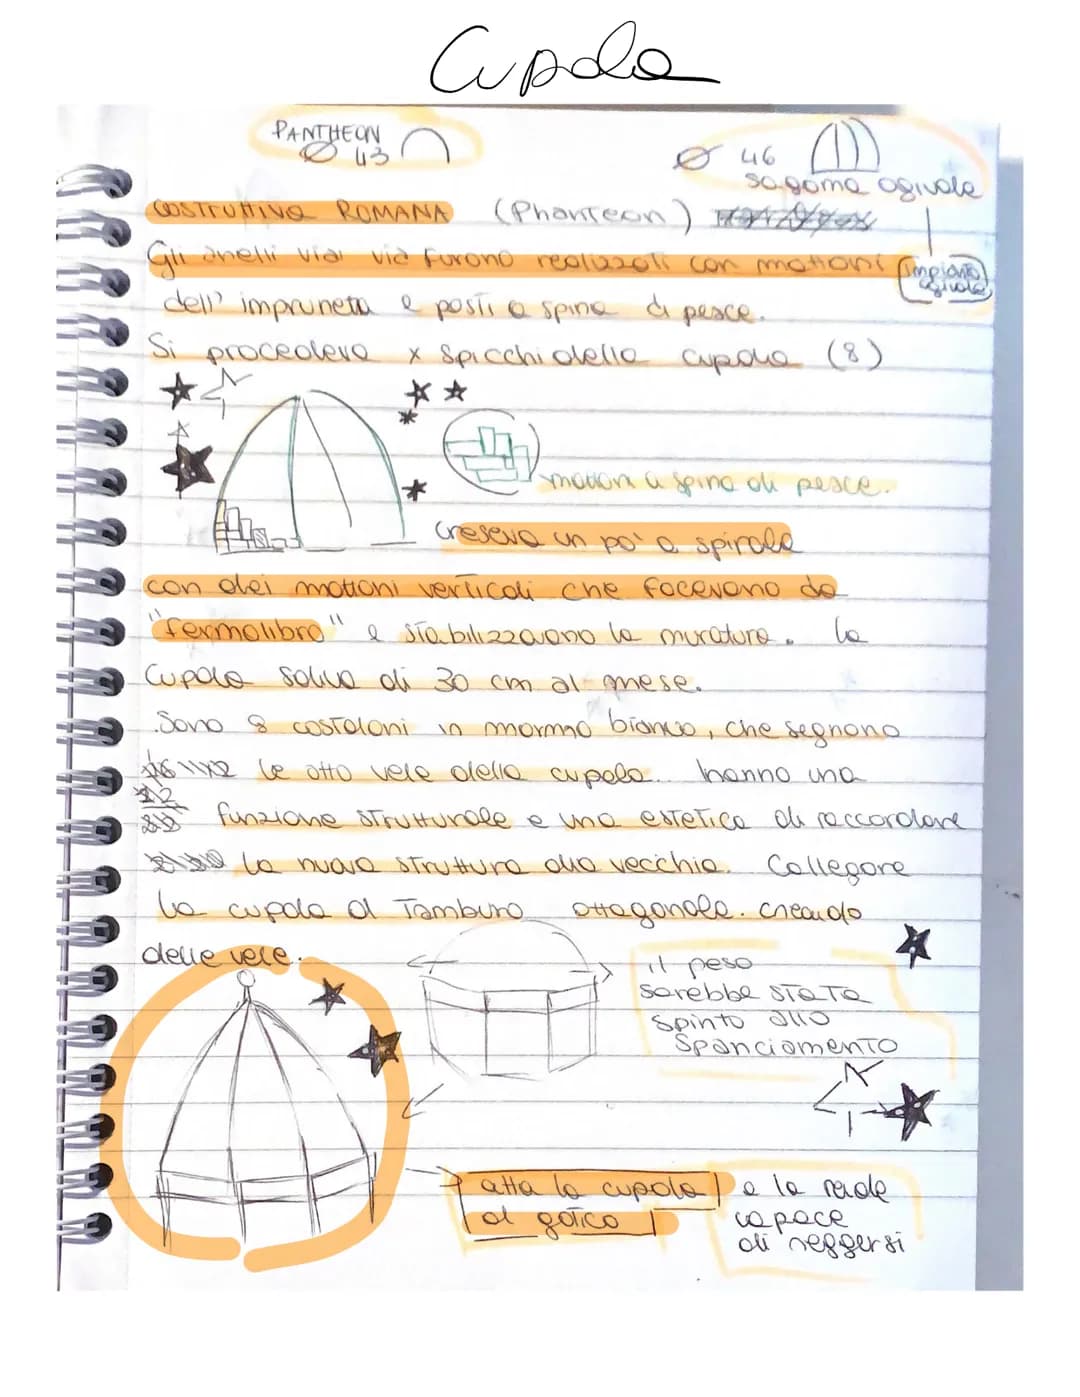 Cupola
PANTHEON
Ø 43
Ø 46
sagoma ogivale
COSTRUTTIVO ROMANA (Phanteon)
impianto
ogivale
Gli anelli via via furono realizzati con mattoni
dell' impruneta e posti a spina di pesce.
Si procedeva x spicchi della cupola (8)
mattoni a spina di pesce.
cresceva un po' a spirale
con dei mattoni verticali che facevano da
"fermalibro" e stabilizzavano la muratura. la
Cupola saliva di 30 cm al mese.
.Sono 8 costoloni in marmo bianco, che segnano
le otto vele della cupola. hanno una
funzione strutturale e una estetica di raccordare
la nuova struttura alla vecchia. Collegare
la cupola al Tamburo ottagonale. creando
delle vele.
il peso
sarebbe stata
spinto allo
spanciamento
atta la cupola
al gotico
e la rende
capace
di reggersi